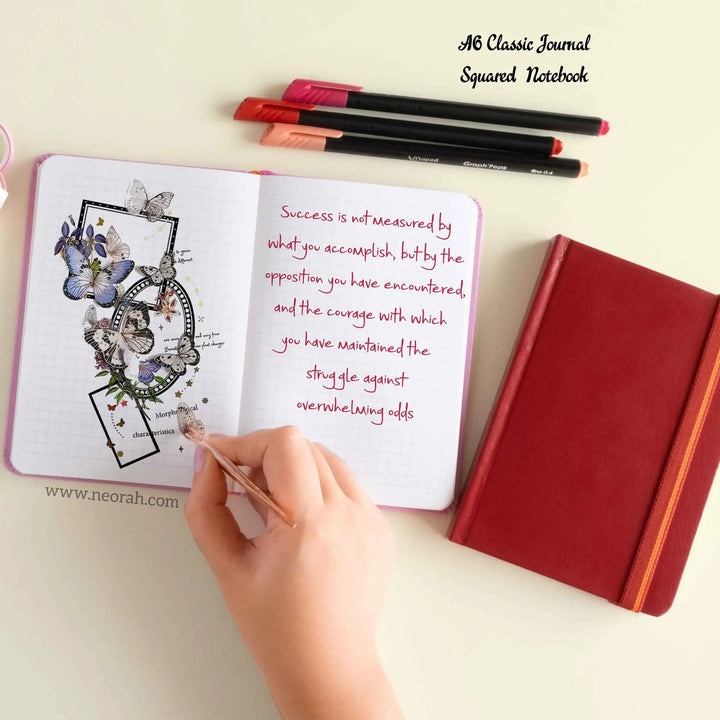 A6 Classic Journal
Squared Notebook
Maped Graph'Peps
Success is not measured by
what you accomplish, but by the
opposition you have encountered,
and the courage with which
you have maintained the
struggle against
overwhelming odds
characteristics
www.neorah.com